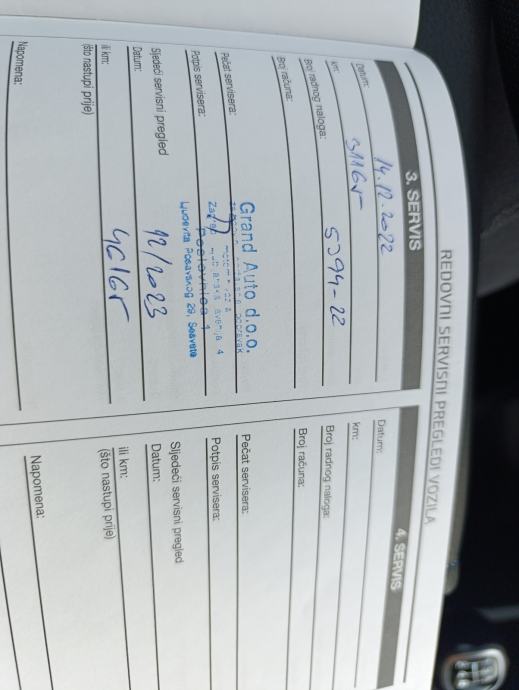 REDOVNI SERVISNI PREGLEDI VOZILA
3. SERVIS
Datum: 14.12.2022
km: 31165
Broj radnog naloga: 5394-22
Broj računa:
Pečat servisera:
Grand Auto d.o.o.
Potpis servisera:
Poslovnica 1
Ljudevita Posavskog 29, Sesvete
Sljedeći servisni pregled
Datum: 12/2023
ili km: 46165
(što nastupi prije)
Napomena:
4. SERVIS
Datum:
km:
Broj radnog naloga:
Broj računa:
Pečat servisera:
Potpis servisera:
Sljedeći servisni pregled
Datum:
ili km:
(što nastupi prije)
Napomena: